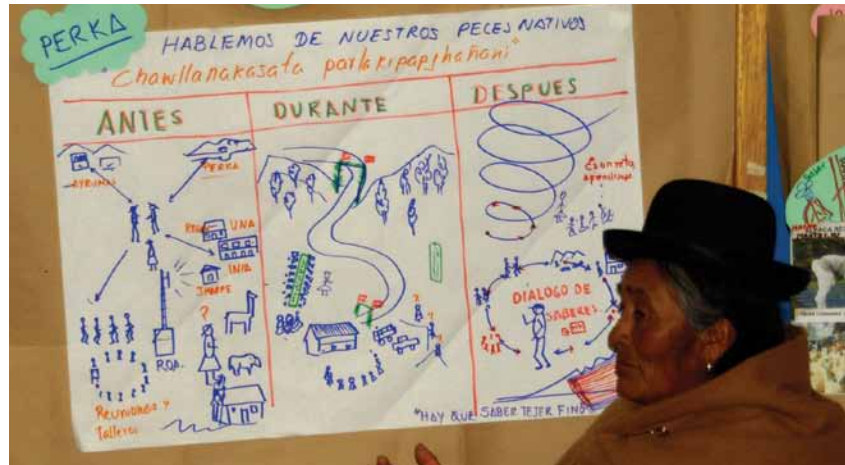 PERKA
HABLEMOS DE NUESTROS PECES NATIVOS
"Chawllanakasata parlakipapjhañani"
ANTES
DURANTE
DESPUES
AYRUMAS
PERKA
UNA
INIA
IMARPE
ROA.
?
Reuniones y
Talleres
? ? ?
aprendizaje
DIALOGO DE
SABERES
"HAY QUE SABER TEJER FINO"